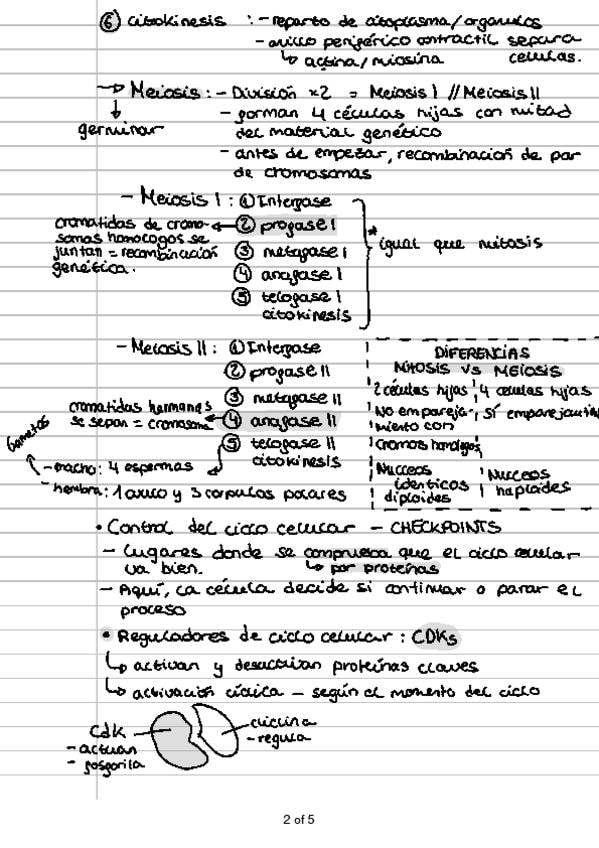 ⑥ citokinesis : - reparto de citoplasma/organulos
- anillo periférico contractil separa
↳ actina/miosina celulas.
→ Meiosis: - División x2 = Meiosis I // Meiosis II
↓
germinar
- forman 4 células hijas con mitad
del material genético
- antes de empezar, recombinación de par
de cromosomas
- Meiosis I : ① Interfase
cromatidas de cromo- ← ② profase I
somas homologos se
juntan = recombinación ③ metafase I
genética.
* igual que mitosis
④ anafase I
⑤ telofase I
citokinesis
- Meiosis II : ① Interfase
② profase II
③ metafase II
cromatidas hermanas
se sepan = cromosoma ← ④ anafase II
⑤ telofase II
citokinesis
Gametos
- macho: 4 espermas
- hembra: 1 ovulo y 3 corpulos polares
DIFERENCIAS
MITOSIS VS MEIOSIS
2 células hijas 4 celulas hijas
No empareja- Sí emparejamien
miento con
cromos homologos
Nucleos Nucleos
identicos haploides
diploides
• Control del ciclo celular - CHECKPOINTS
- Lugares donde se comprueba que el ciclo celular
va bien. ↳ por proteínas
- Aquí, la célula decide si continuar o parar el
proceso
• Reguladores de ciclo celular : CDKs
↳ activan y desactivan proteínas claves
↳ activación cíclica - según el momento del ciclo
Cdk
- actuan
- fosforila
ciclina
- regula
2 of 5